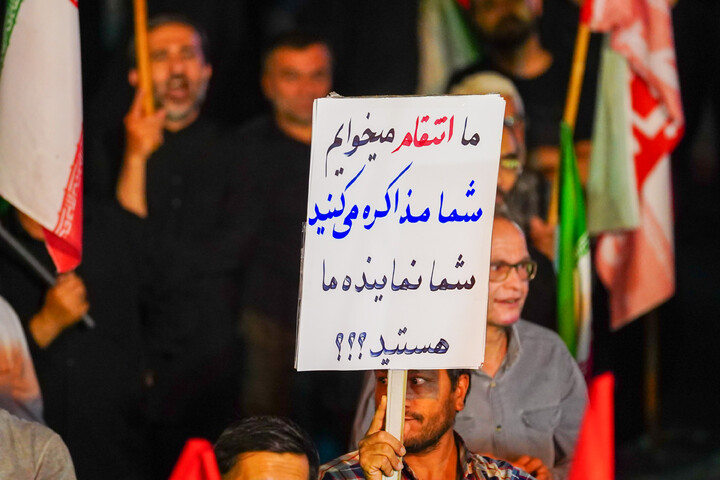 ما انتقام میخوایم
شما مذاکره می‌کنید
شما نماینده ما
هستید ؟؟؟